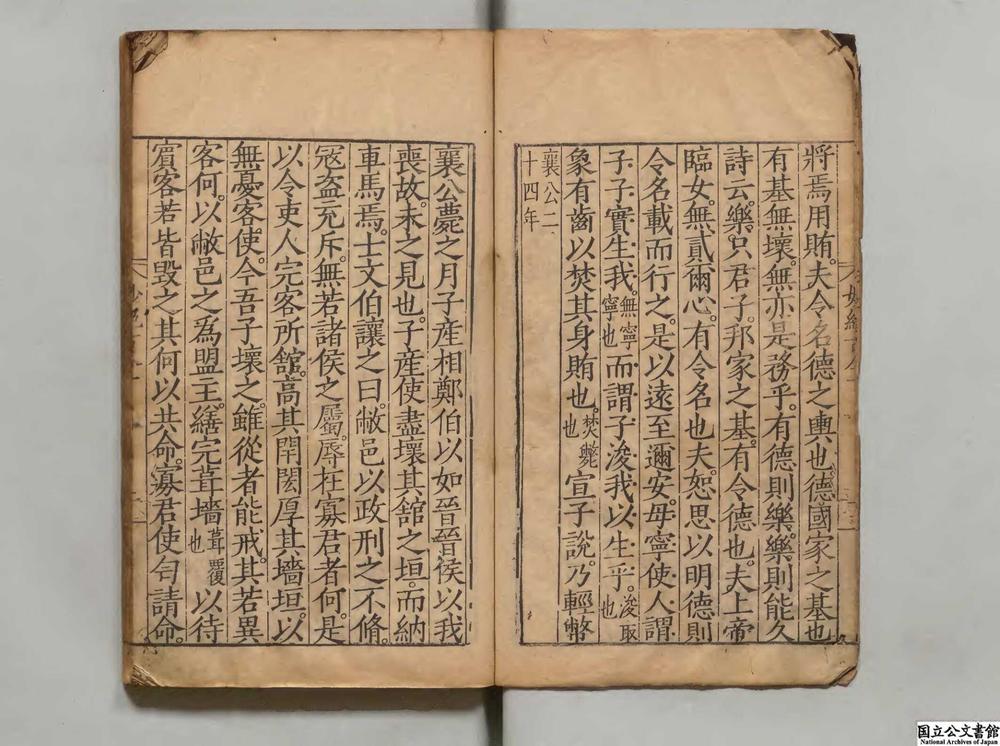 將焉用賄。夫令名德之輿也。德國家之基也
有基無壞。無亦是務乎。有德則樂。樂則能久
詩云。樂只君子。邦家之基。有令德也。夫上帝
臨女。無貳爾心。有令名也夫。恕思以明德則
令名載而行之。是以遠至邇安。毋寧使人謂
子子實生我。無寧寧也而謂子浚我以生乎。浚取也
象有齒以焚其身賄也。焚斃也宣子說。乃輕幣
襄公二十四年
襄公薨之月子產相鄭伯以如晉晉侯以我
喪故。未之見也。子產使盡壞其舘之垣。而納
車馬焉。士文伯讓之曰。敝邑以政刑之不脩。
冦盗充斥。無若諸侯之屬。辱在寡君者何。是
以令吏人完客所舘。高其閈閎厚其墻垣。以
無憂客使。今吾子壞之。雖從者能戒。其若異
客何。以敝邑之為盟主。繕完葺墻葺覆也以待
賔客若皆毀之。其何以共命。寡君使匄請命。
国立公文書館
National Archives of Japan